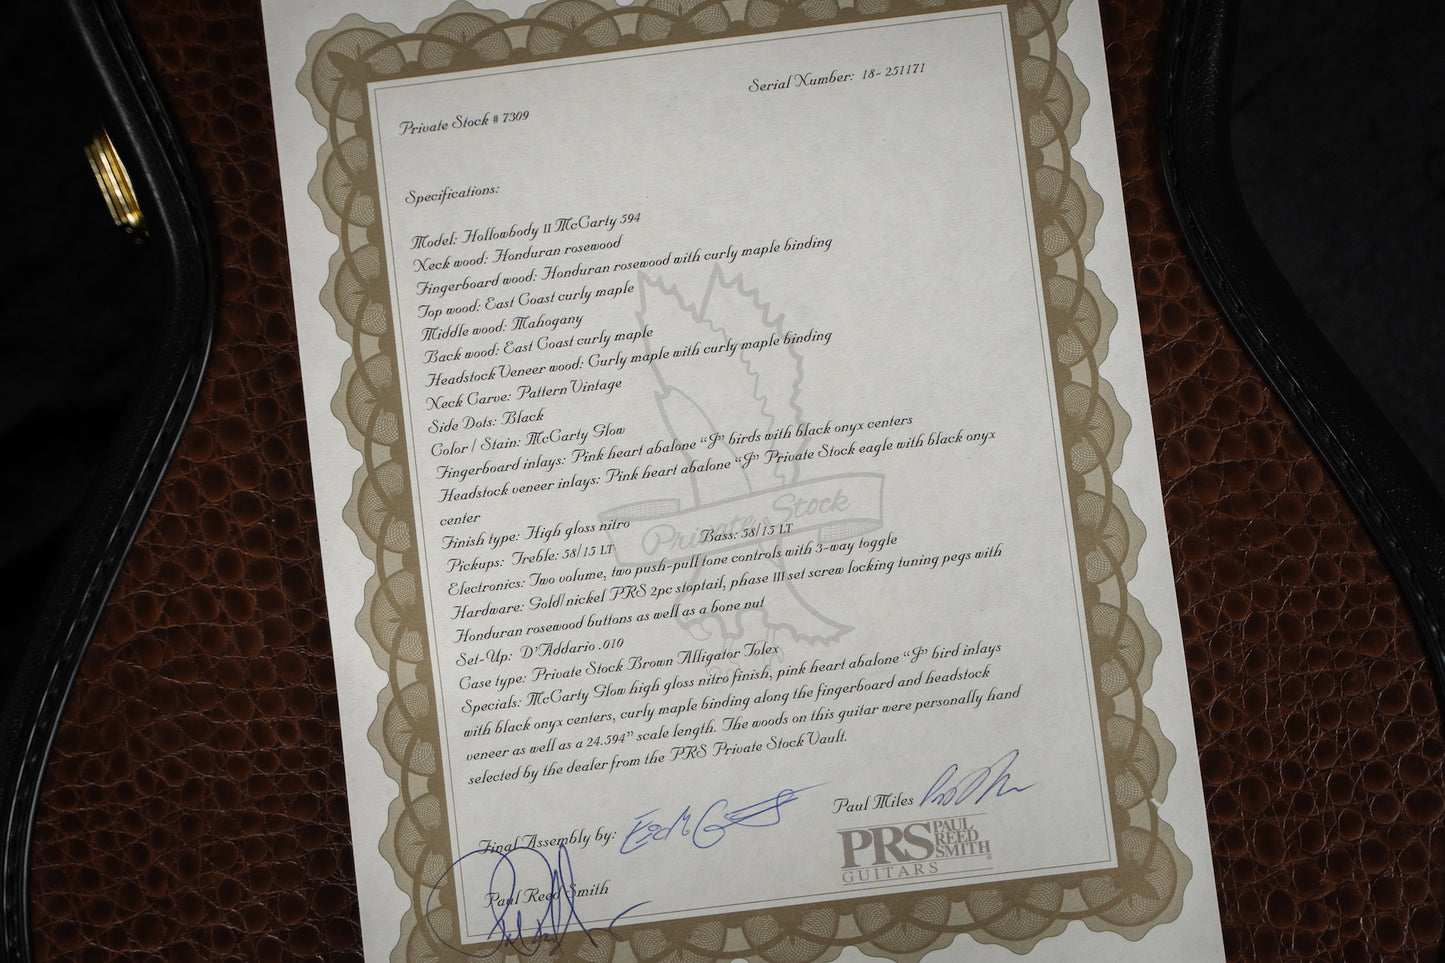 Serial Number: 18- 251171
Private Stock # 7309
Specifications:
Model: Hollowbody II McCarty 594
Neck wood: Honduran rosewood
Fingerboard wood: Honduran rosewood with curly maple binding
Top wood: East Coast curly maple
Middle wood: Mahogany
Back wood: East Coast curly maple
Headstock Veneer wood: Curly maple with curly maple binding
Neck Carve: Pattern Vintage
Side Dots: Black
Color / Stain: McCarty Glow
Fingerboard inlays: Pink heart abalone “J” birds with black onyx centers
Headstock veneer inlays: Pink heart abalone “J” Private Stock eagle with black onyx
center
Finish type: High gloss nitro
Pickups: Treble: 58/15 LT Bass: 58/15 LT
Electronics: Two volume, two push-pull tone controls with 3-way toggle
Hardware: Gold/nickel PRS 2pc stoptail, phase III set screw locking tuning pegs with
Honduran rosewood buttons as well as a bone nut
Set-Up: D'Addario .010
Case type: Private Stock Brown Alligator Tolex
Specials: McCarty Glow high gloss nitro finish, pink heart abalone “J” bird inlays
with black onyx centers, curly maple binding along the fingerboard and headstock
veneer as well as a 24.594” scale length. The woods on this guitar were personally hand
selected by the dealer from the PRS Private Stock Vault.
Private Stock
Final Assembly by:
Paul Miles
Paul Reed Smith
PRS PAUL REED SMITH
GUITARS